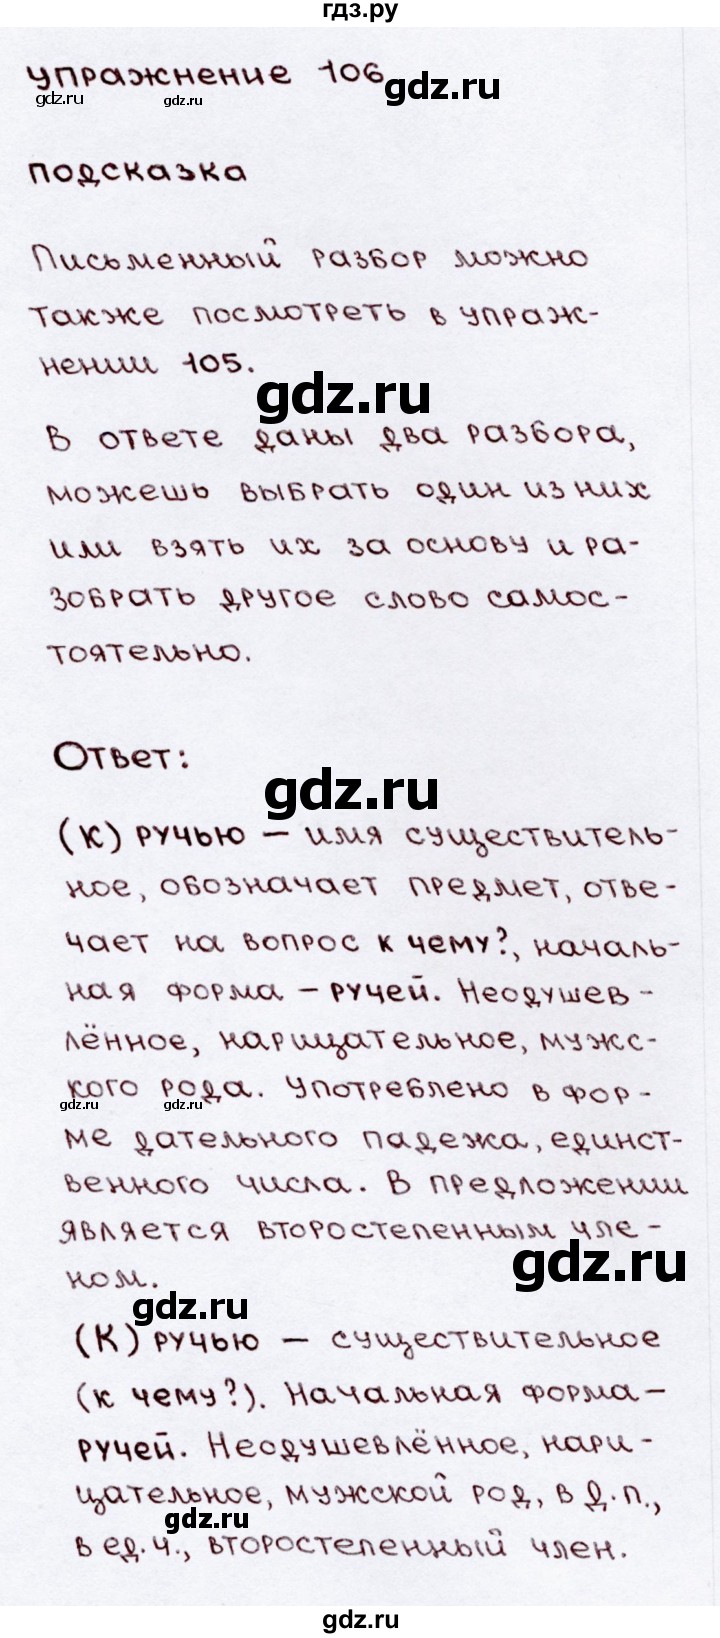 гдз.ру
упражнение 106
gdz.ru
gdz.ru
gdz.ru
подсказка
Письменный разбор можно
также посмотреть в упраж-
нении 105.
gdz.ru
В ответе даны два разбора,
можешь выбрать один из них
или взять их за основу и ра-
зобрать другое слово самос-
тоятельно.
Ответ:
gdz.ru
(К) ручью – имя существитель-
ное, обозначает предмет, отве-
чает на вопрос к чему?, началь-
ная форма – ручей. Неодушев-
лённое, нарицательное, мужс-
кого рода. Употреблено в фор-
gdz.ru
gdz.ru
ме дательного падежа, единст-
венного числа. В предложении
является второстепенным чле-
gdz.ru
ном.
gdz.ru
(К) ручью – существительное
(к чему?). Начальная форма –
ручей. Неодушевлённое, нари-
цательное, мужской род, в д.п.,
gdz.ru
в ед.ч., второстепенный член.
gdz.ru